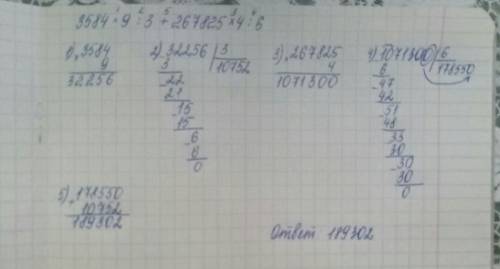 3584 · 9 : 3 + 267825 × 4 : 6
1) 3584
9
32256
2) 32256 | 3
3 | 10752
22
21
15
15
6
6
0
3) 267825
4
1071300
4) 1071300 | 6
6 | 178550
47
42
51
48
33
30
30
30
0
5) 178550
10752
189302
Ответ 189302